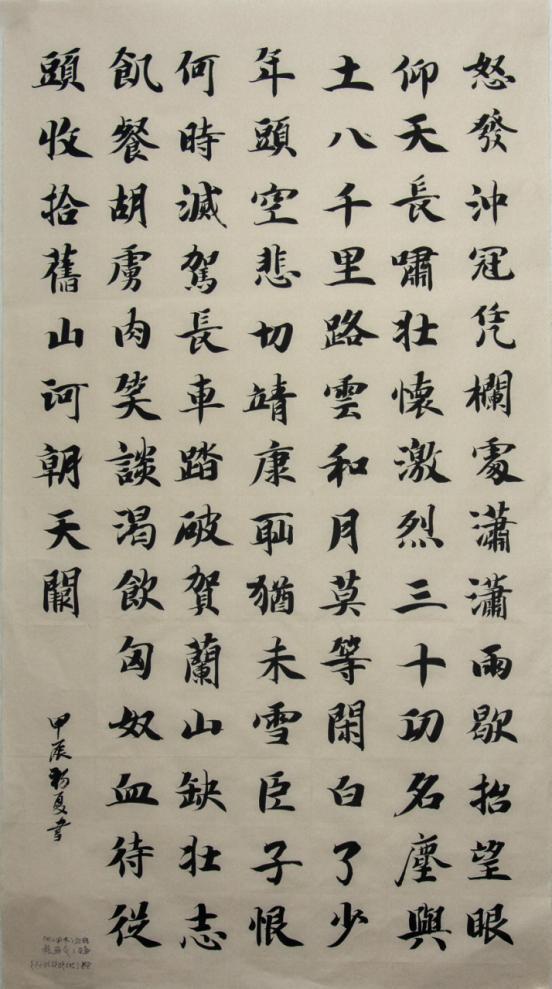 怒發沖冠凭欄處瀟瀟雨歇抬望眼
仰天長嘯壯懷激烈三十功名塵與
土八千里路雲和月莫等閑白了少
年頭空悲切靖康耻猶未雪臣子恨
何時滅駕長車踏破賀蘭山缺壯志
飢餐胡虜肉笑談渴飲匈奴血待從
頭收拾舊山河朝天闕
甲辰初夏書